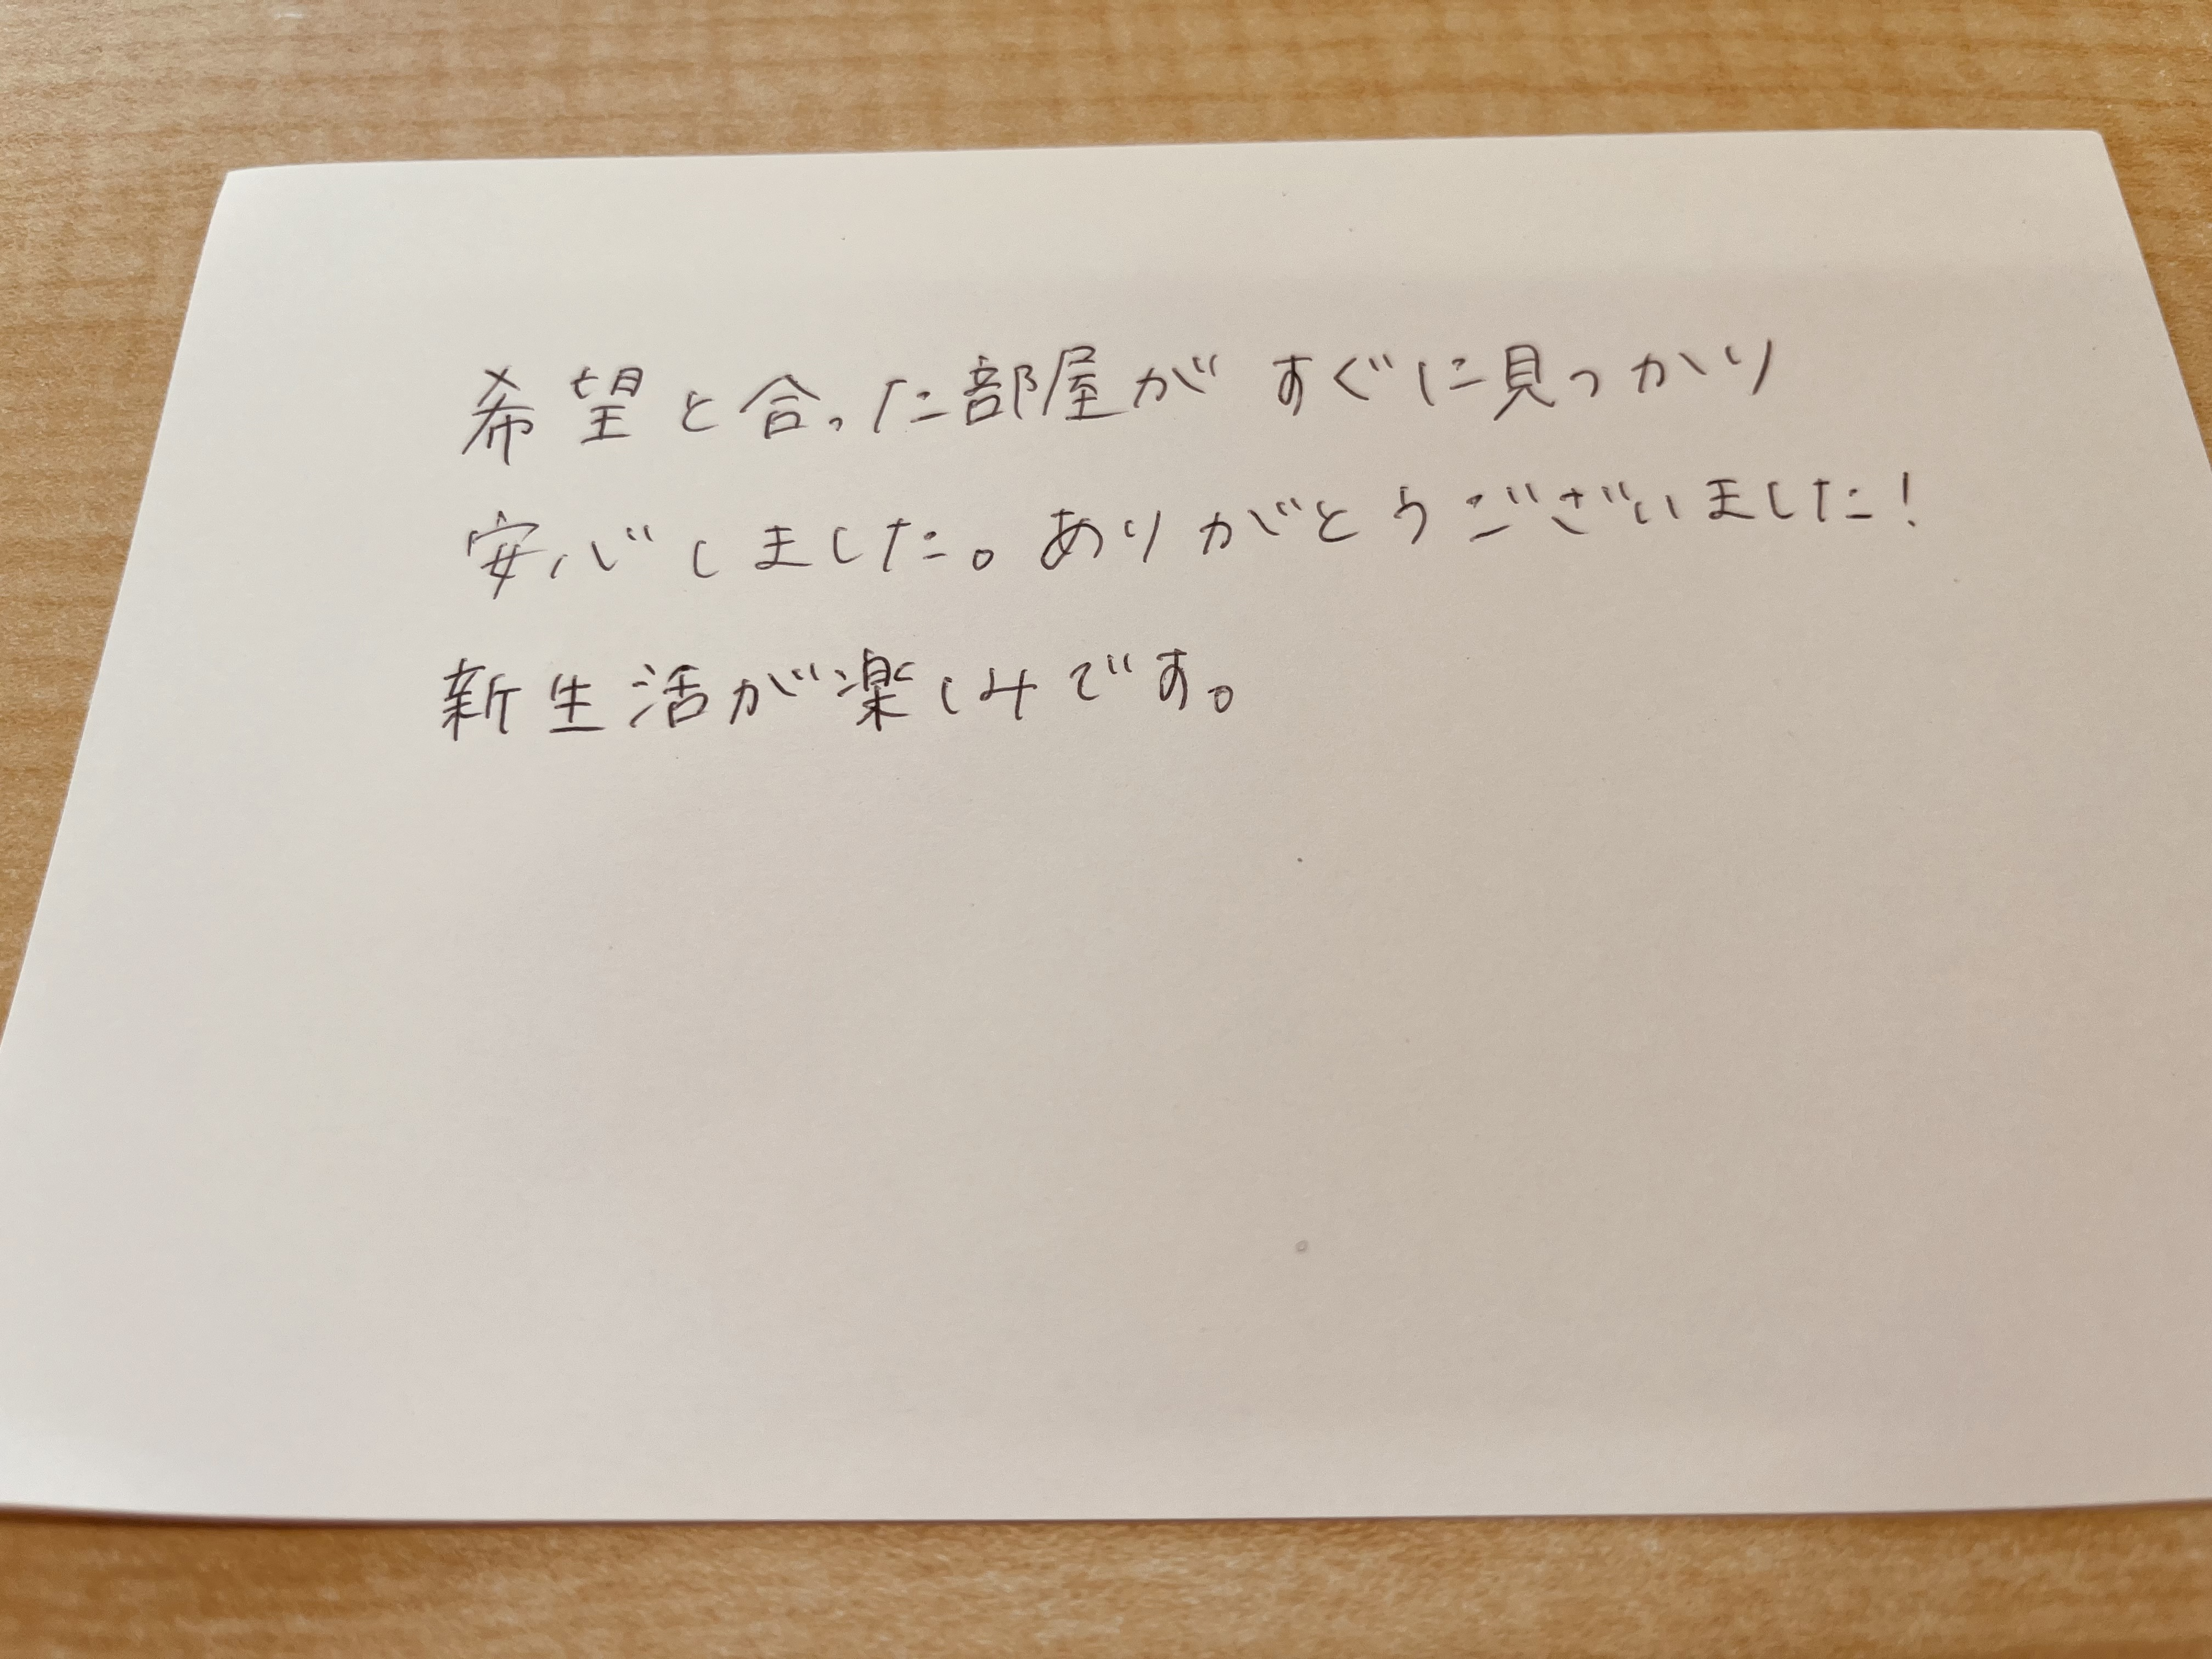 希望と合った部屋がすぐに見つかり
安心しました。ありがとうございました!
新生活が楽しみです。